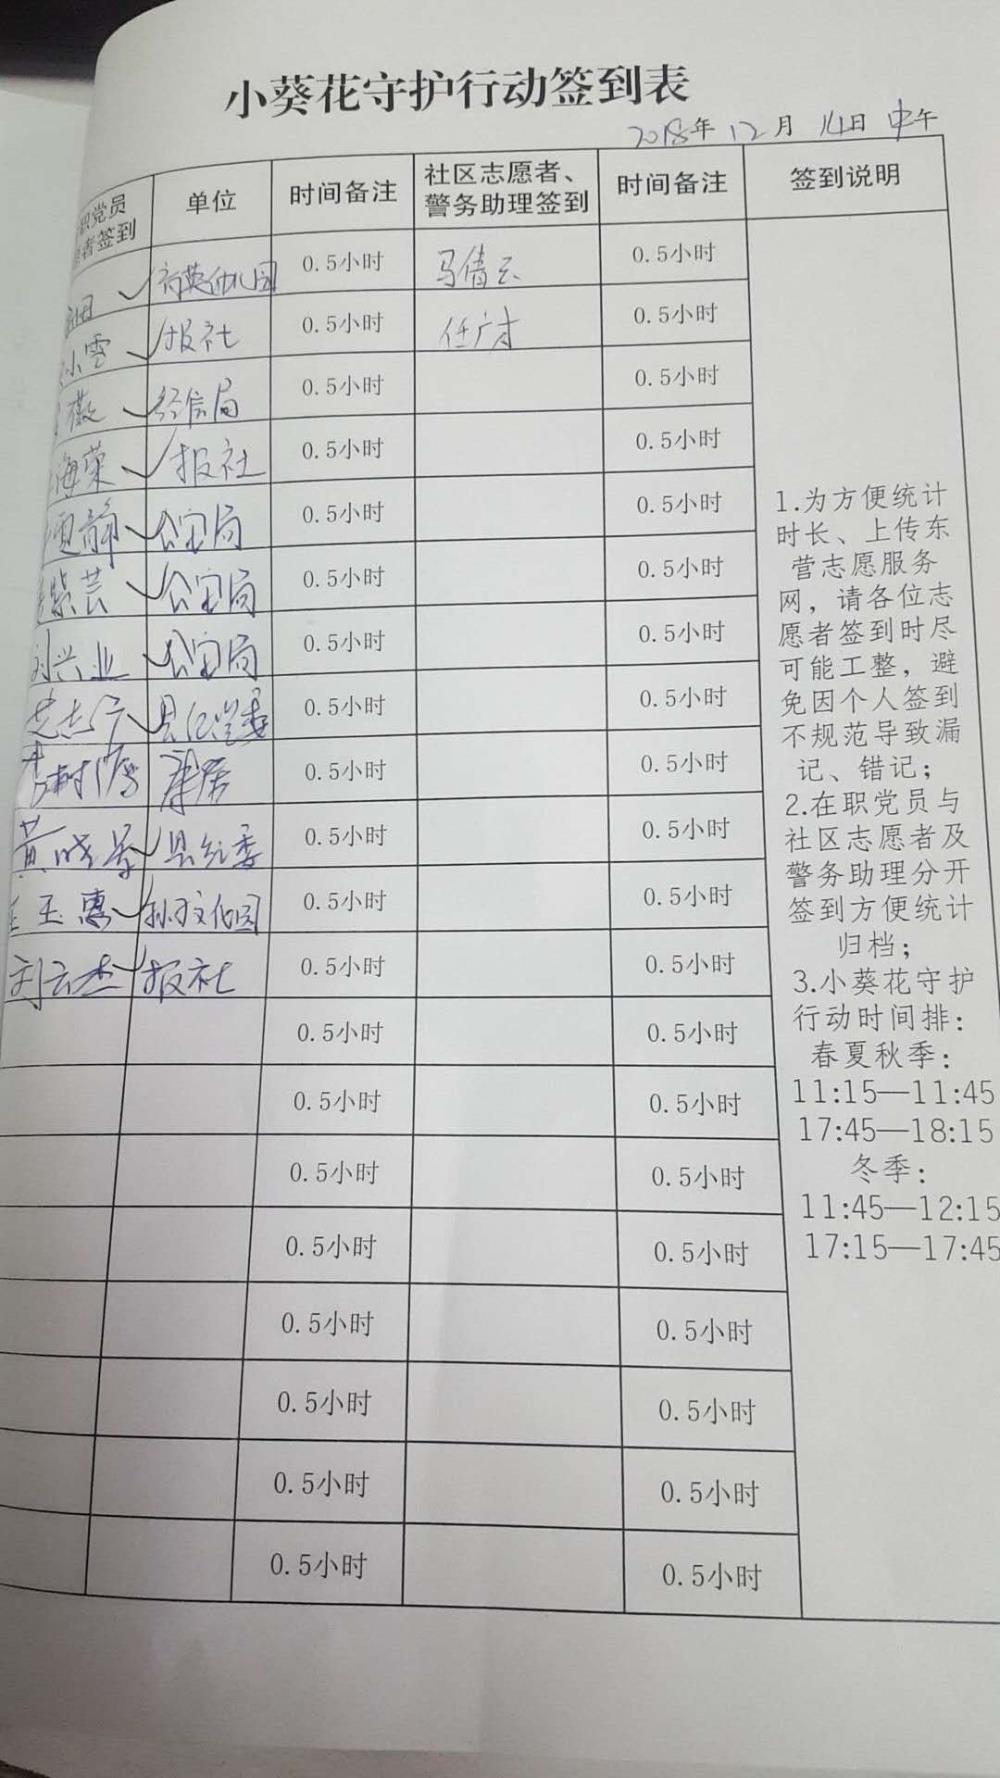 小葵花守护行动签到表
2018年 12月 14日 中午
职党员
者签到
单位
时间备注
社区志愿者、
警务助理签到
时间备注
签到说明
0.5小时 马倩云 0.5小时
小雪 报社 0.5小时 0.5小时
薇 经信局 0.5小时 0.5小时
海荣 报社 0.5小时 0.5小时
静 公安局 0.5小时 0.5小时
紫芸 公安局 0.5小时 0.5小时
刘兴业 公安局 0.5小时 0.5小时
0.5小时 0.5小时
0.5小时 0.5小时
黄晓 县纪委 0.5小时 0.5小时
玉惠 0.5小时 0.5小时
刘云杰 报社 0.5小时 0.5小时
0.5小时 0.5小时
0.5小时 0.5小时
0.5小时 0.5小时
0.5小时 0.5小时
0.5小时 0.5小时
0.5小时 0.5小时
0.5小时 0.5小时
0.5小时 0.5小时
1.为方便统计
时长、上传东
营志愿服务
网，请各位志
愿者签到时尽
可能工整，避
免因个人签到
不规范导致漏
记、错记；
2.在职党员与
社区志愿者及
警务助理分开
签到方便统计
归档；
3.小葵花守护
行动时间排：
春夏秋季：
11:15—11:45
17:45—18:15
冬季：
11:45—12:15
17:15—17:45